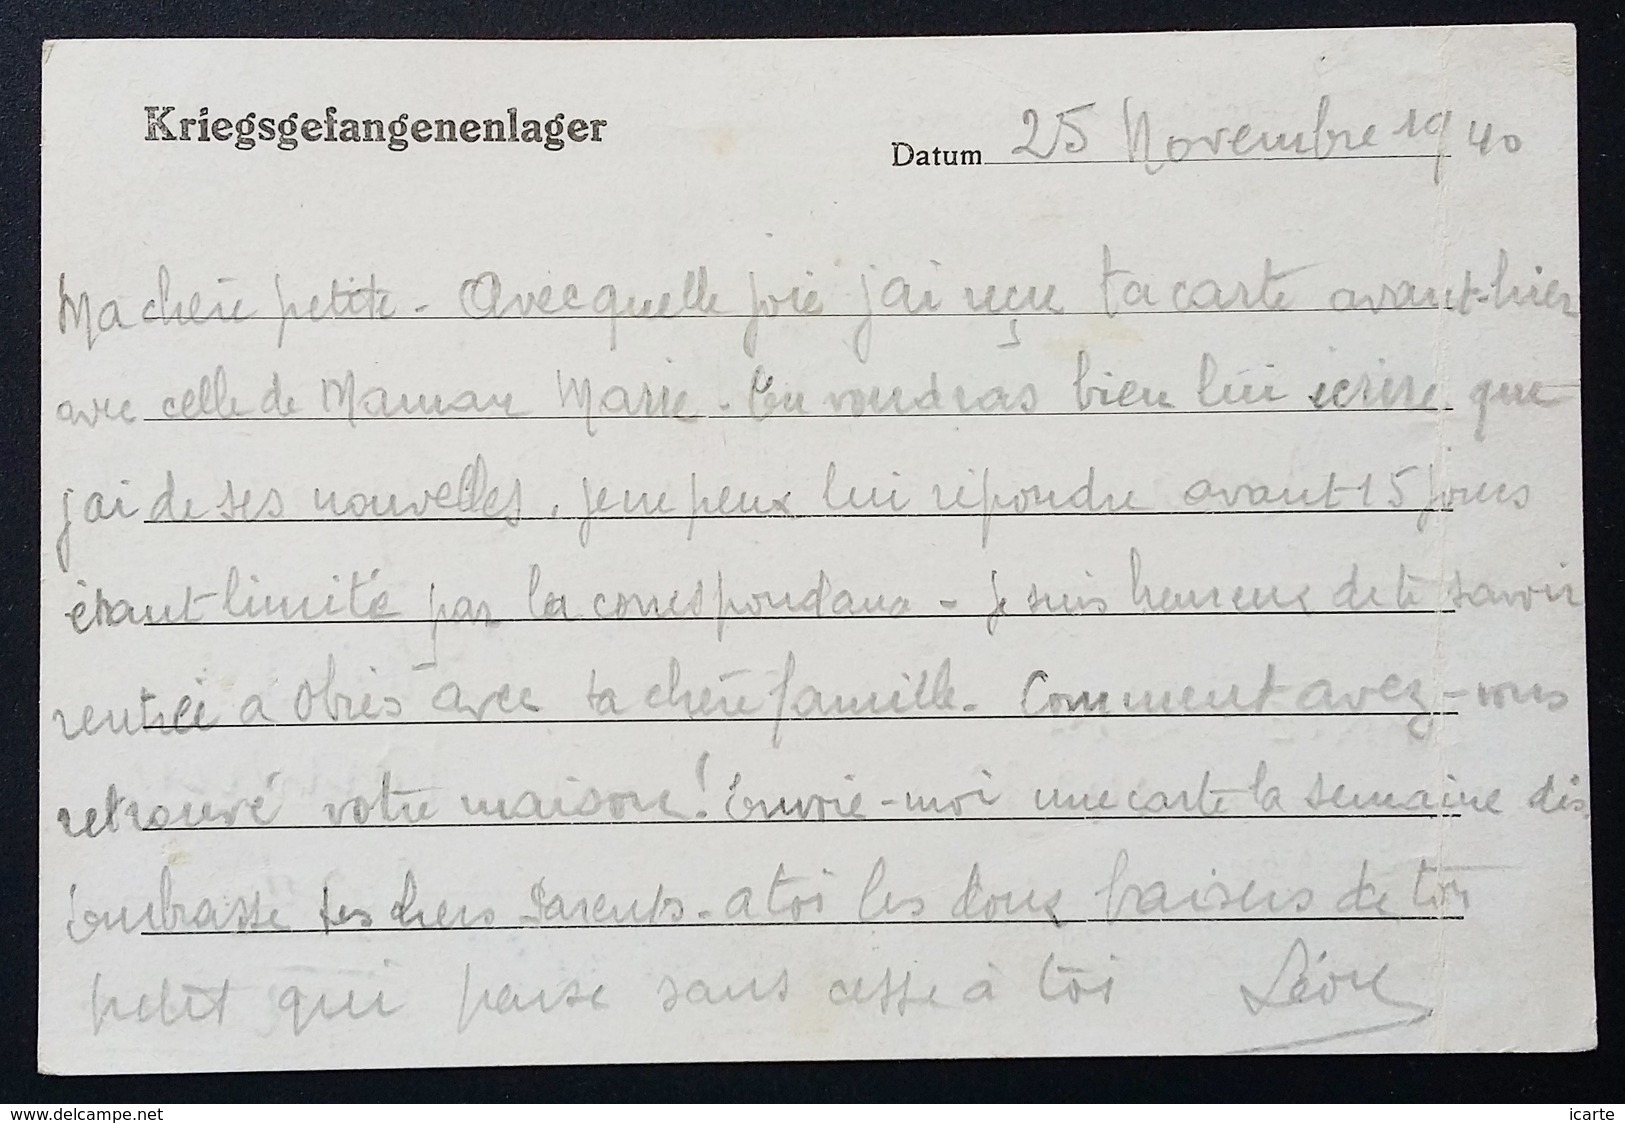 Kriegsgefangenenlager
Datum 25 Novembre 1940
Ma chère petite - Avec quelle joie j'ai reçu ta carte avant-hier
avec celle de Maman Marie. Tu voudras bien lui écrire que
j'ai de ses nouvelles. je ne peux lui répondre avant 15 jours
étant limité par la correspondance - je suis heureux de te savoir
rentrée à avec ta chère famille. Comment avez-vous
retrouvé votre maison! Envoie-moi une carte la semaine
Embrasse tes chers Parents. a toi les doux baisers de ton
petit qui pense sans cesse à toi Léon
www.delcampe.net
icarte